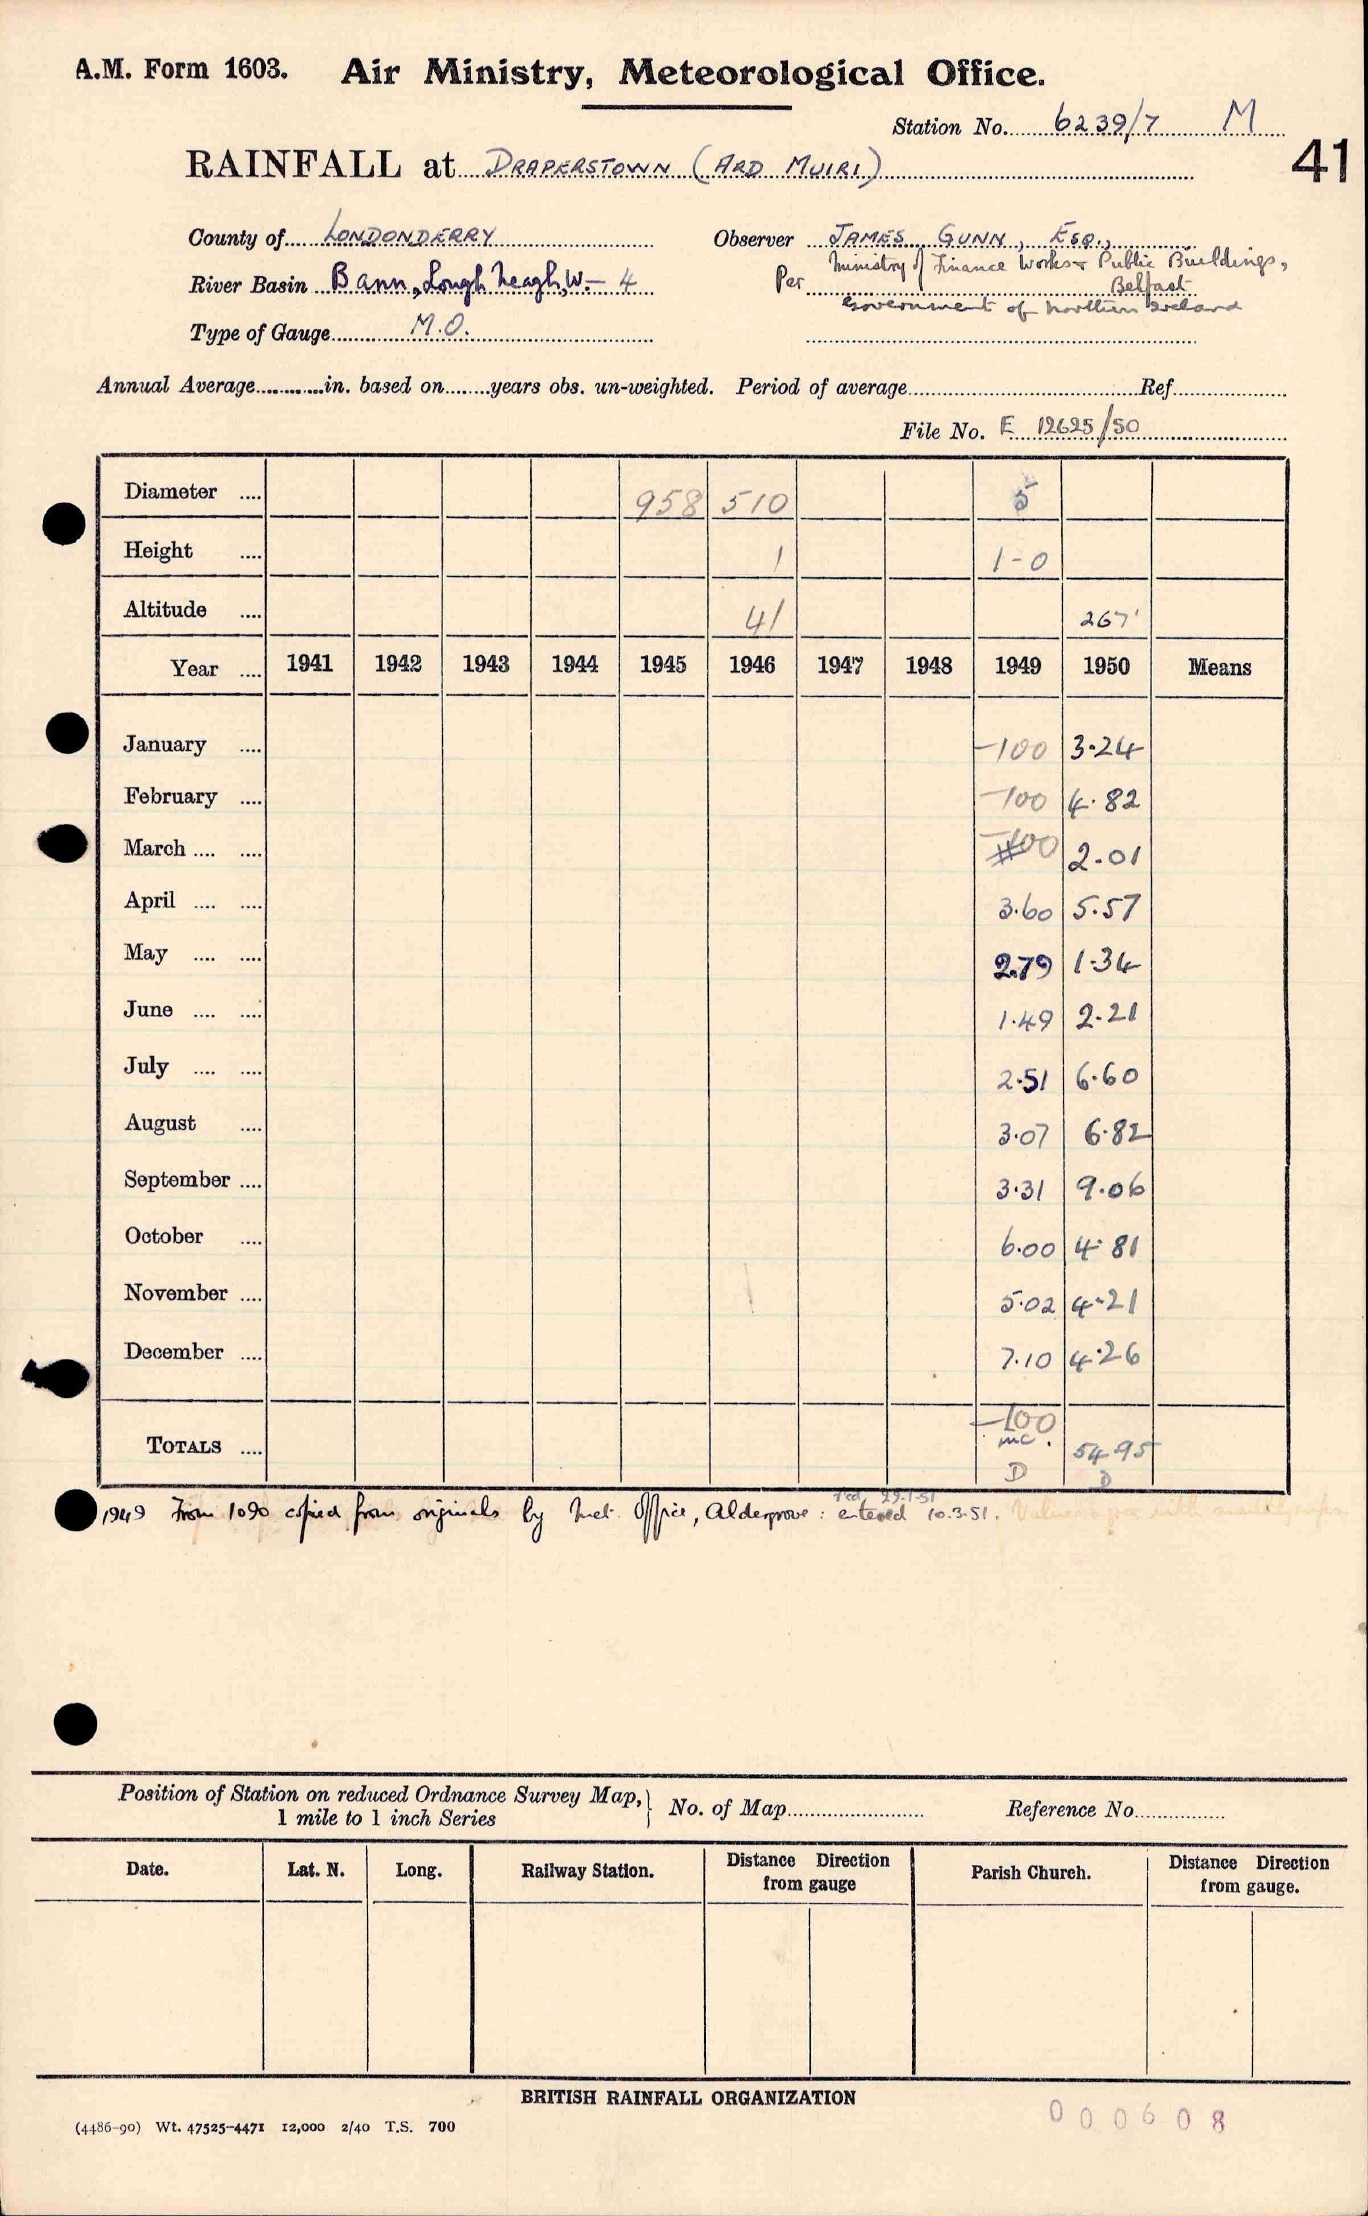 A.M. Form 1603. Air Ministry, Meteorological Office.
Station No. 6239/7 M
41
RAINFALL at DRAPERSTOWN (ARD MUIRI)
County of LONDONDERRY Observer JAMES GUNN, ESQ.,
River Basin Bann, Lough Neagh, W.- 4 Per Ministry of Finance Works & Public Buildings,
Belfast
Government of Northern Ireland
Type of Gauge M.O.
Annual Average in. based on years obs. un-weighted. Period of average Ref
File No. E 12625/50
Diameter 958 510 5
Height 1 1-0
Altitude 41 267'
Year 1941 1942 1943 1944 1945 1946 1947 1948 1949 1950 Means
January -100 3.24
February -100 4.82
March -100 2.01
April 3.60 5.57
May 2.79 1.34
June 1.49 2.21
July 2.51 6.60
August 3.07 6.82
September 3.31 9.06
October 6.00 4.81
November 5.02 4.21
December 7.10 4.26
-100
TOTALS inc. 54.95
D D
rcd. 29.1.51
1949 From 1090 copied from originals by Met. Office, Aldergrove: entered 10.3.51. Values agree with
Position of Station on reduced Ordnance Survey Map, 1 mile to 1 inch Series } No. of Map Reference No
Date. Lat. N. Long. Railway Station. Distance Direction from gauge Parish Church. Distance Direction from gauge.
BRITISH RAINFALL ORGANIZATION
000608
(4486-90) Wt. 47525-4471 12,000 2/40 T.S. 700